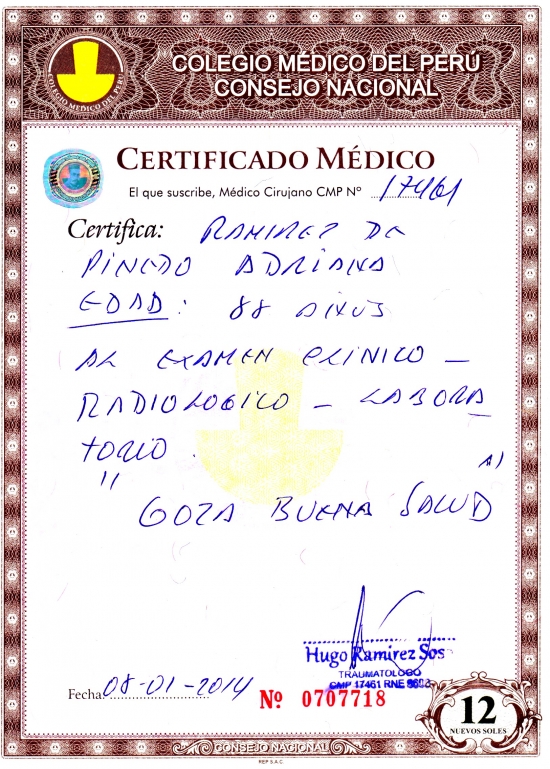 COLEGIO MÉDICO DEL PERÚ
CONSEJO NACIONAL
COLEGIO MÉDICO DEL PERÚ
CERTIFICADO MÉDICO
El que suscribe, Médico Cirujano CMP Nº 17461
Certifica: RAMIREZ DE
PINEDO ADRIANA
EDAD: 88 AÑOS
AL EXAMEN CLINICO –
RADIOLOGICO – LABORA
TORIO.
GOZA BUENA SALUD
Hugo Ramirez Sos
TRAUMATOLOGO
CMP 17461 RNE
Fecha 08-01-2014
Nº 0707718
12
NUEVOS SOLES
CONSEJO NACIONAL
REP S.A.C.